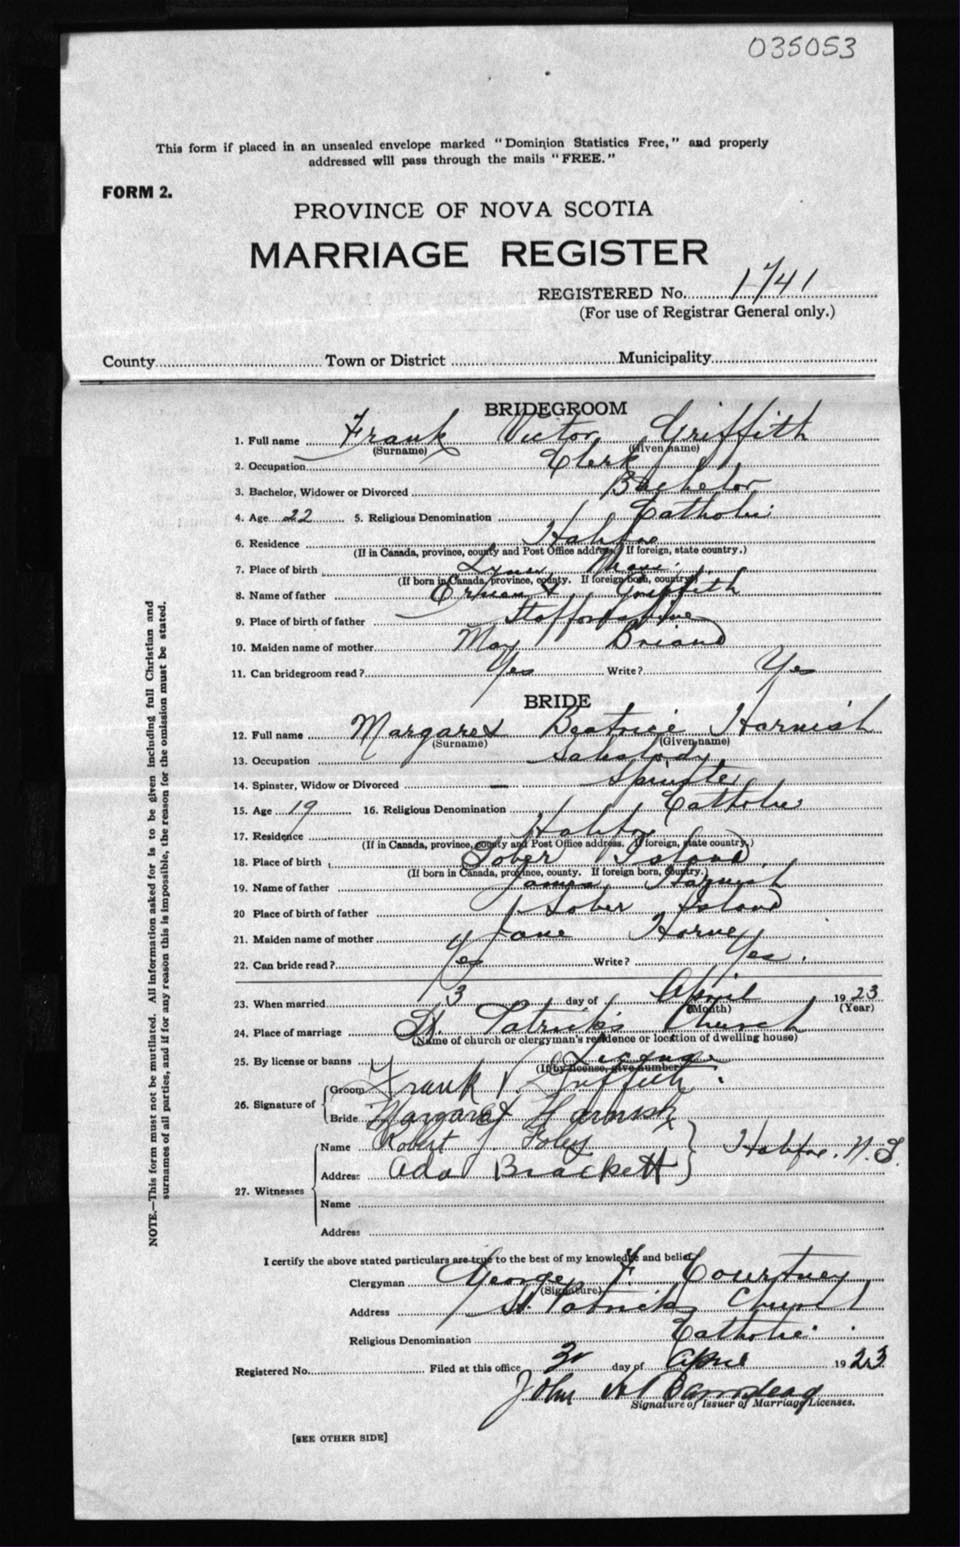 035053
This form if placed in an unsealed envelope marked "Dominion Statistics Free," and properly
addressed will pass through the mails "FREE."
FORM 2.
PROVINCE OF NOVA SCOTIA
MARRIAGE REGISTER
REGISTERED No. 1741
(For use of Registrar General only.)
County Town or District Municipality
BRIDEGROOM
1. Full name Frank Victor Griffith
(Surname) (Given name)
2. Occupation Clerk
3. Bachelor, Widower or Divorced Bachelor
4. Age 22 5. Religious Denomination Catholic
6. Residence Halifax
(If in Canada, province, county and Post Office address. If foreign, state country.)
7. Place of birth Lynn Mass.
(If born in Canada, province, county. If foreign born, country.)
8. Name of father Griffith
9. Place of birth of father Staffordshire
10. Maiden name of mother May Briand
11. Can bridegroom read? Yes Write? Yes
BRIDE
12. Full name Margaret Beatrice Harnish
(Surname) (Given name)
13. Occupation Saleslady
14. Spinster, Widow or Divorced Spinster
15. Age 19 16. Religious Denomination Catholic
17. Residence Halifax
(If in Canada, province, county and Post Office address. If foreign, state country.)
18. Place of birth Sober Island
(If born in Canada, province, county. If foreign born, country.)
19. Name of father James Harnish
20 Place of birth of father Sober Island
21. Maiden name of mother Jane Horne
22. Can bride read? Yes Write? Yes.
23. When married 3 day of April 1923
(Month) (Year)
24. Place of marriage St. Patrick's Church
(Name of church or clergyman's residence or location of dwelling house)
25. By license or banns License
(If by license, give number)
26. Signature of Groom Frank V Griffith
Bride Margaret Harnish
27. Witnesses Name Robert J Foley
Address Ada Brackett Halifax. N. S.
Name
Address
I certify the above stated particulars are true to the best of my knowledge and belief.
Clergyman George F. Courtney
(Signature)
Address St. Patricks Church
Religious Denomination Catholic
Registered No. Filed at this office day of April 1923
John A
Signature of Issuer of Marriage Licenses.
[SEE OTHER SIDE]
NOTE.—This form must not be mutilated. All information asked for is to be given including full Christian and
surnames of all parties, and if for any reason this is impossible, the reason for the omission must be stated.